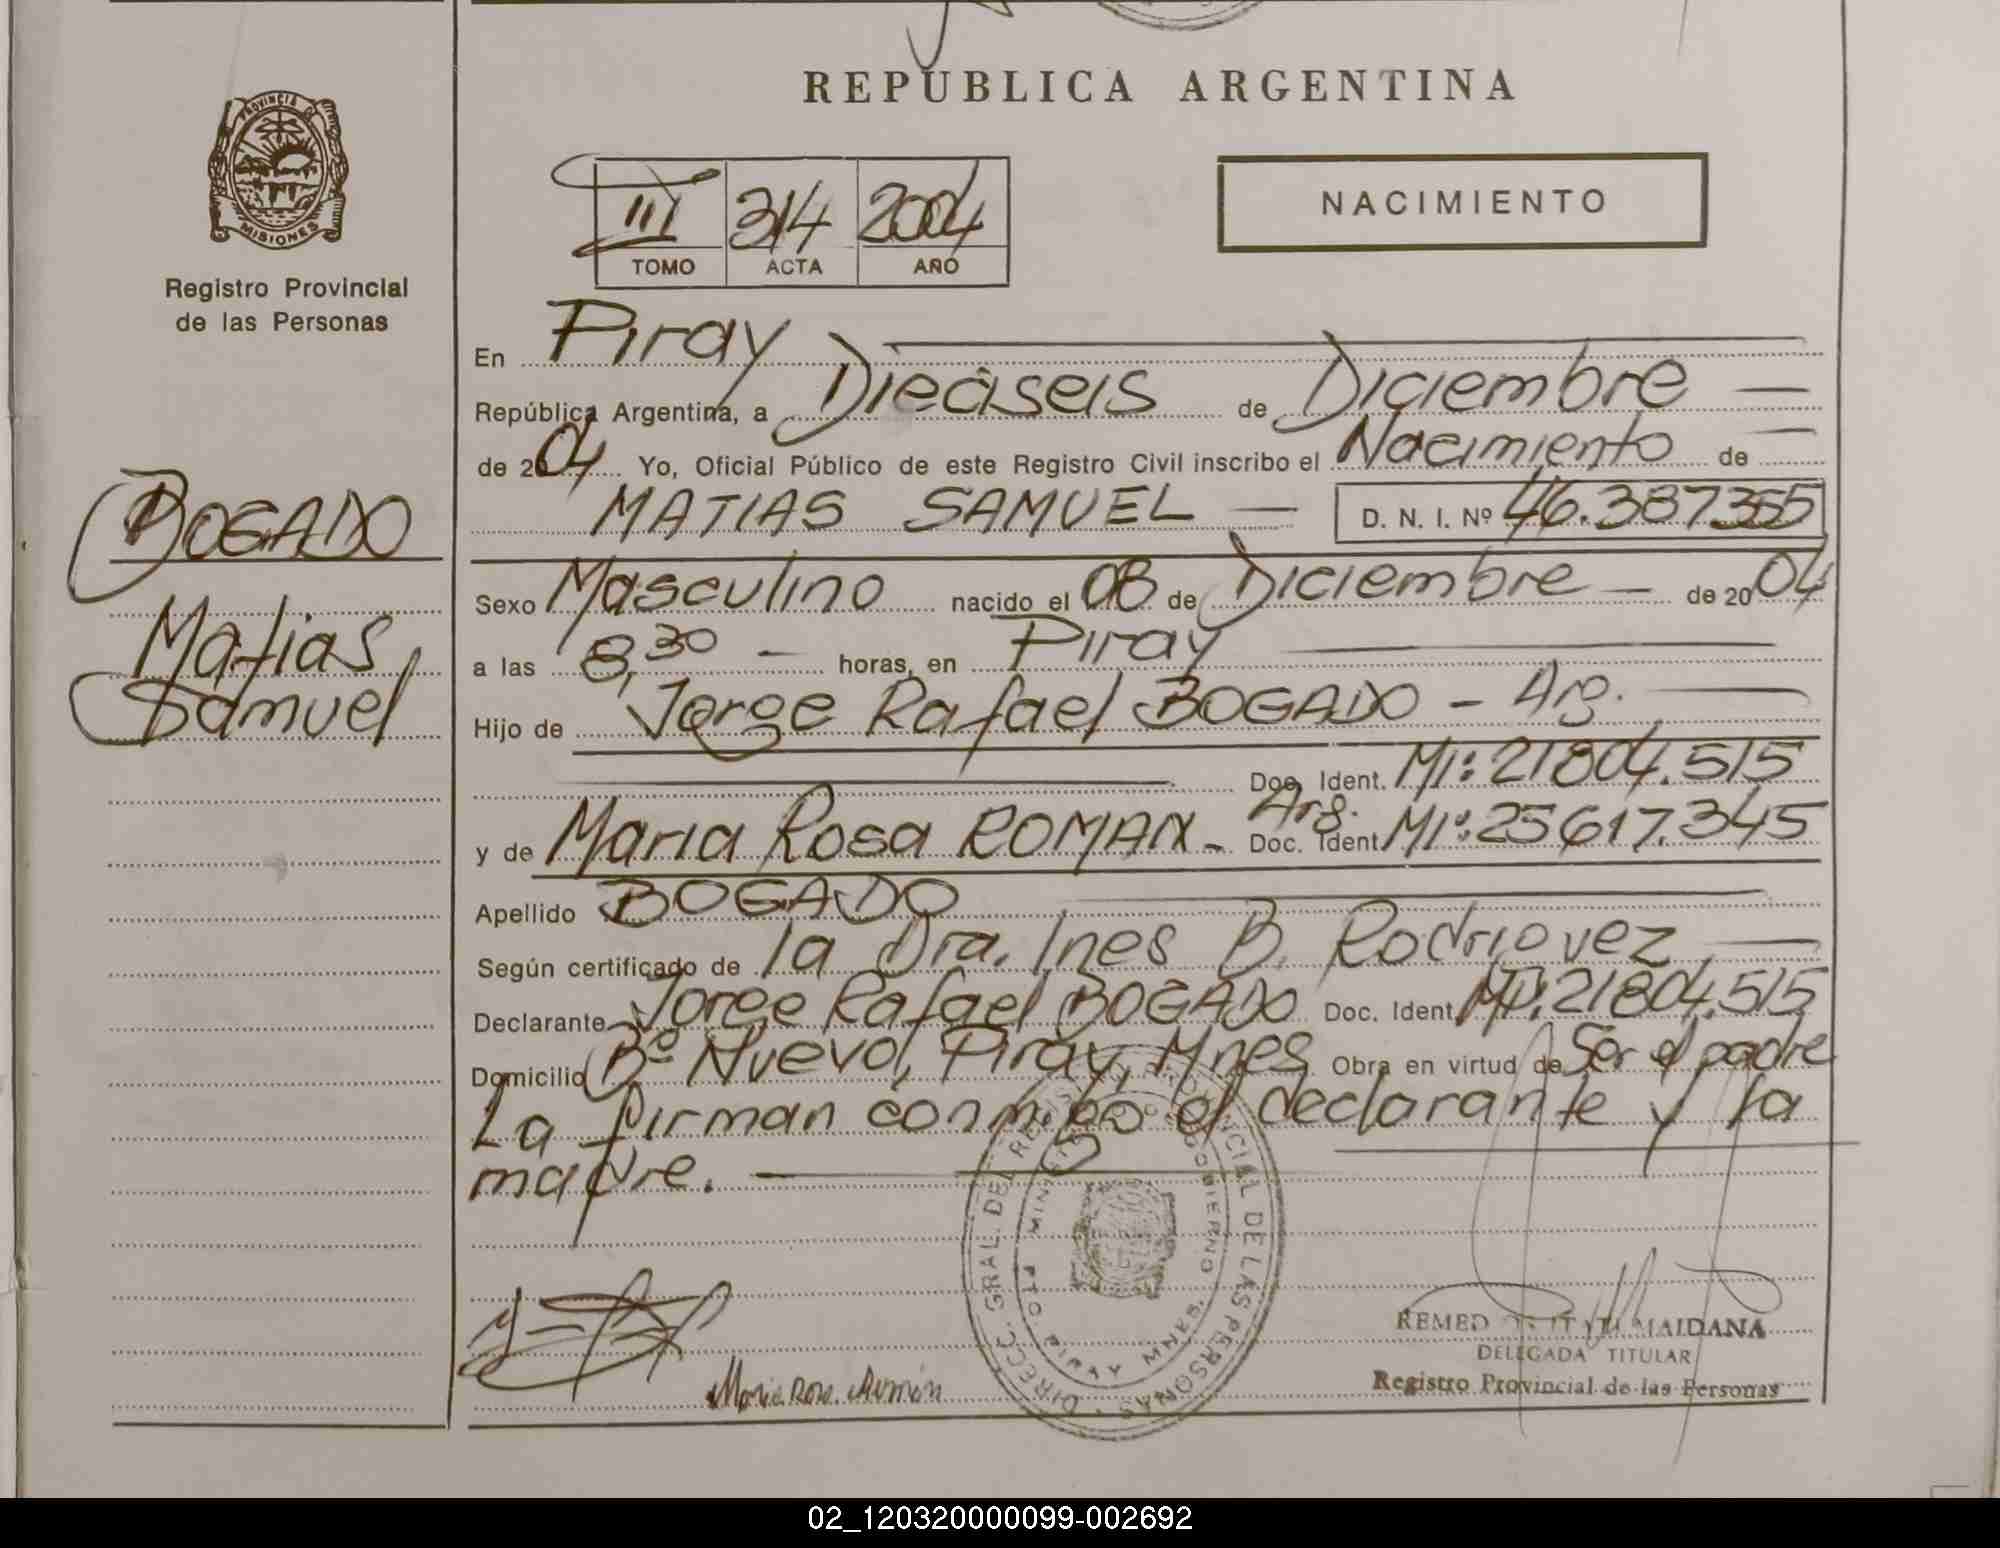 REPUBLICA ARGENTINA
PROVINCIA DE
MISIONES
Registro Provincial
de las Personas
III 314 2004
TOMO ACTA AÑO
NACIMIENTO
BOGADO
Matias
Samuel
En Piray
República Argentina, a Dieciseis de Diciembre
de 2004 Yo, Oficial Público de este Registro Civil inscribo el Nacimiento de
MATIAS SAMUEL — D. N. I. Nº 46.387355
Sexo Masculino nacido el 08 de Diciembre — de 2004
a las 8,30 — horas, en Piray
Hijo de Jorge Rafael BOGADO - Arg.
Doc. Ident. MI: 21804.515
y de Maria Rosa ROMAN - Arg. Doc. Ident. MI: 25617.345
Apellido BOGADO
Según certificado de la Dra. Ines B. Rodriguez
Declarante Jorge Rafael BOGADO Doc. Ident. MI: 21804.515
Domicilio Bº Nuevo, Piray, Mnes Obra en virtud de Ser el padre
La firman conmigo el declarante y la
madre.
DIRECC. GRAL. DEL REGISTRO PROVINCIAL DE LAS PERSONAS
MINISTERIO DE GOBIERNO
PTO PIRAY MNES.
Maria Rosa Román
REMED MAIDANA
DELEGADA TITULAR
Registro Provincial de las Personas
02_120320000099-002692